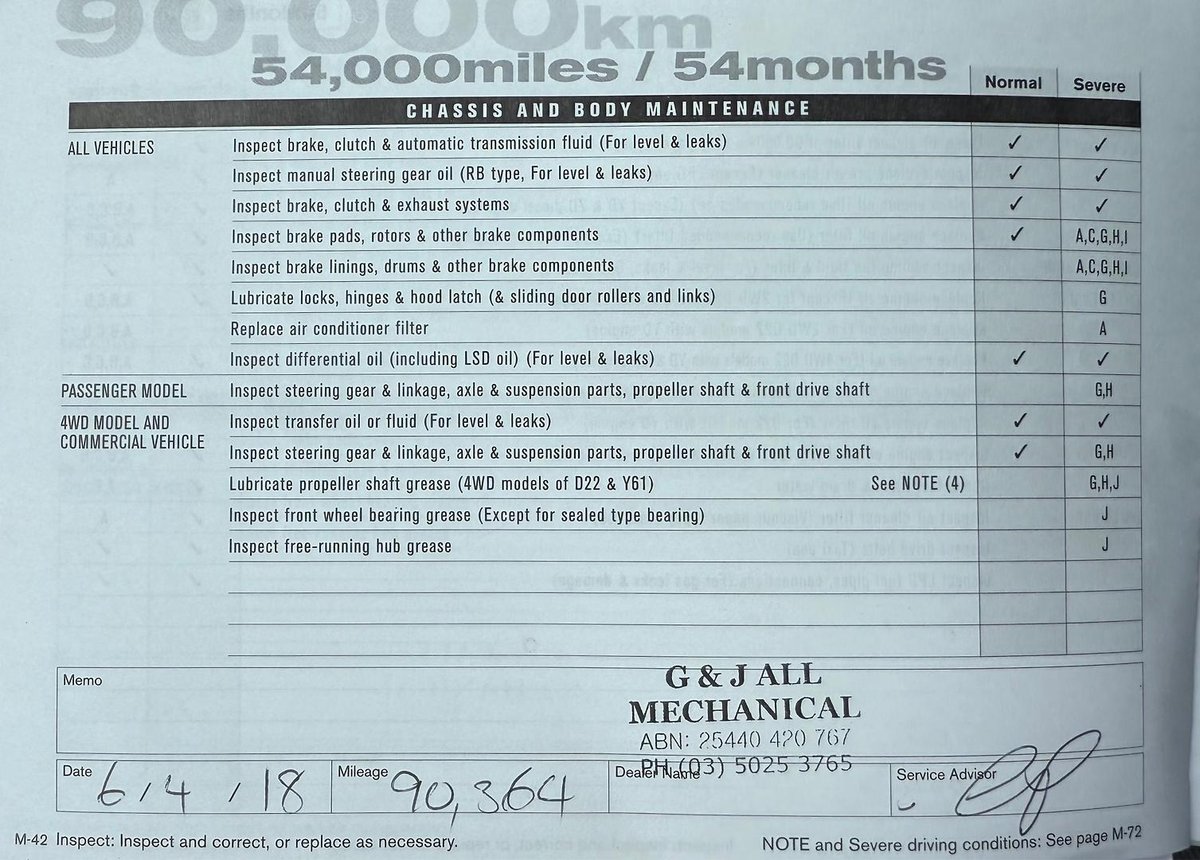 90,000km
54,000miles / 54months
Normal Severe
CHASSIS AND BODY MAINTENANCE
ALL VEHICLES Inspect brake, clutch & automatic transmission fluid (For level & leaks) ✓ ✓
Inspect manual steering gear oil (RB type, For level & leaks) ✓ ✓
Inspect brake, clutch & exhaust systems ✓ ✓
Inspect brake pads, rotors & other brake components ✓ A,C,G,H,I
Inspect brake linings, drums & other brake components A,C,G,H,I
Lubricate locks, hinges & hood latch (& sliding door rollers and links) G
Replace air conditioner filter A
Inspect differential oil (including LSD oil) (For level & leaks) ✓ ✓
PASSENGER MODEL Inspect steering gear & linkage, axle & suspension parts, propeller shaft & front drive shaft G,H
4WD MODEL AND Inspect transfer oil or fluid (For level & leaks) ✓ ✓
COMMERCIAL VEHICLE Inspect steering gear & linkage, axle & suspension parts, propeller shaft & front drive shaft ✓ G,H
Lubricate propeller shaft grease (4WD models of D22 & Y61) See NOTE (4) G,H,J
Inspect front wheel bearing grease (Except for sealed type bearing) J
Inspect free-running hub grease J
Memo
G & J ALL
MECHANICAL
ABN: 25440 420 767
PH (03) 5025 3765
Date 6/4/18 Mileage 90,364 Dealer Name Service Advisor
M-42 Inspect: Inspect and correct, or replace as necessary. NOTE and Severe driving conditions: See page M-72